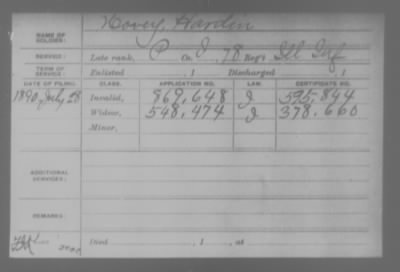 NAME OF SOLDIER: Hovey, Hardin
SERVICE: Late rank, P Co. I, 78 Reg't Ill Inf
TERM OF SERVICE: Enlisted , 1 Discharged , 1
DATE OF FILING. CLASS. APPLICATION NO. LAW. CERTIFICATE NO.
1890, July, 28 Invalid, 869,648 J 595,844
Widow, 548,474 J 378,660
Minor,
ADDITIONAL SERVICES:
REMARKS:
Died , 1 , at